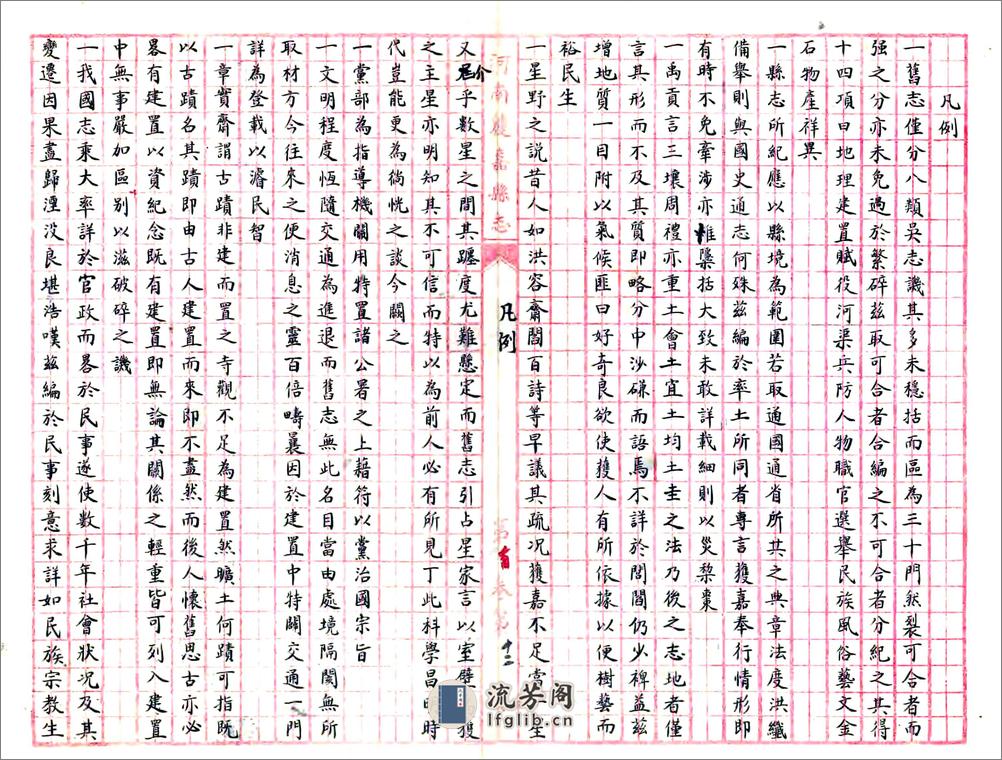 凡例
一舊志僅分八類吳志譏其多未穩括而區為三十門然裂可合者而
强之分亦未免過於繁碎茲取可合者合編之不可合者分紀之共得
十四項曰地理建置賦役河渠兵防人物職官選舉民族風俗藝文金
石物產祥異
一縣志所紀應以縣境為範圍若取通國通省所共之典章法度洪纖
備舉則與國史通志何殊茲編於率土所同者專言獲嘉奉行情形即
有時不免牽涉亦惟檃括大致未敢詳載細則以災梨棗
一禹貢言三壤周禮亦重土會土宜土均土圭之法乃後之志地者僅
言其形而不及其質即略分中沙磏而語焉不詳於閭閻仍少裨益茲
增地質一目附以氣候匪曰好奇良欲使獲人有所依據以便樹藝而
裕民生
一星野之説昔人如洪容齋閻百詩等早議其疏况獲嘉不足當一星
河南獲嘉縣志
凡例
第首卷第十二
又介乎數星之間其躔度尤難懸定而舊志引占星家言以室壁獲
之主星亦明知其不可信而特以為前人必有所見丁此科學昌明時
代豈能更為惝恍之談今闕之
一黨部為指導機關用特置諸公署之上藉符以黨治國宗旨
一文明程度恆隨交通為進退而舊志無此名目當由處境隔閡無所
取材方今往來之便消息之靈百倍疇曩因於建置中特闢交通一門
詳為登載以濬民智
一章實齋謂古蹟非建而置之寺觀不足為建置然曠土何蹟可指既
以古蹟名其蹟即由古人建置而來即不盡然而後人懷舊思古亦必
畧有建置以資紀念既有建置即無論其關係之輕重皆可列入建置
中無事嚴加區别以滋破碎之譏
一我國志乘大率詳於官政而畧於民事遂使數千年社會狀况及其
變遷因果盡歸湮没良堪浩嘆茲編於民事刻意求詳如民族宗教生
流芳阁
lfglib.cn